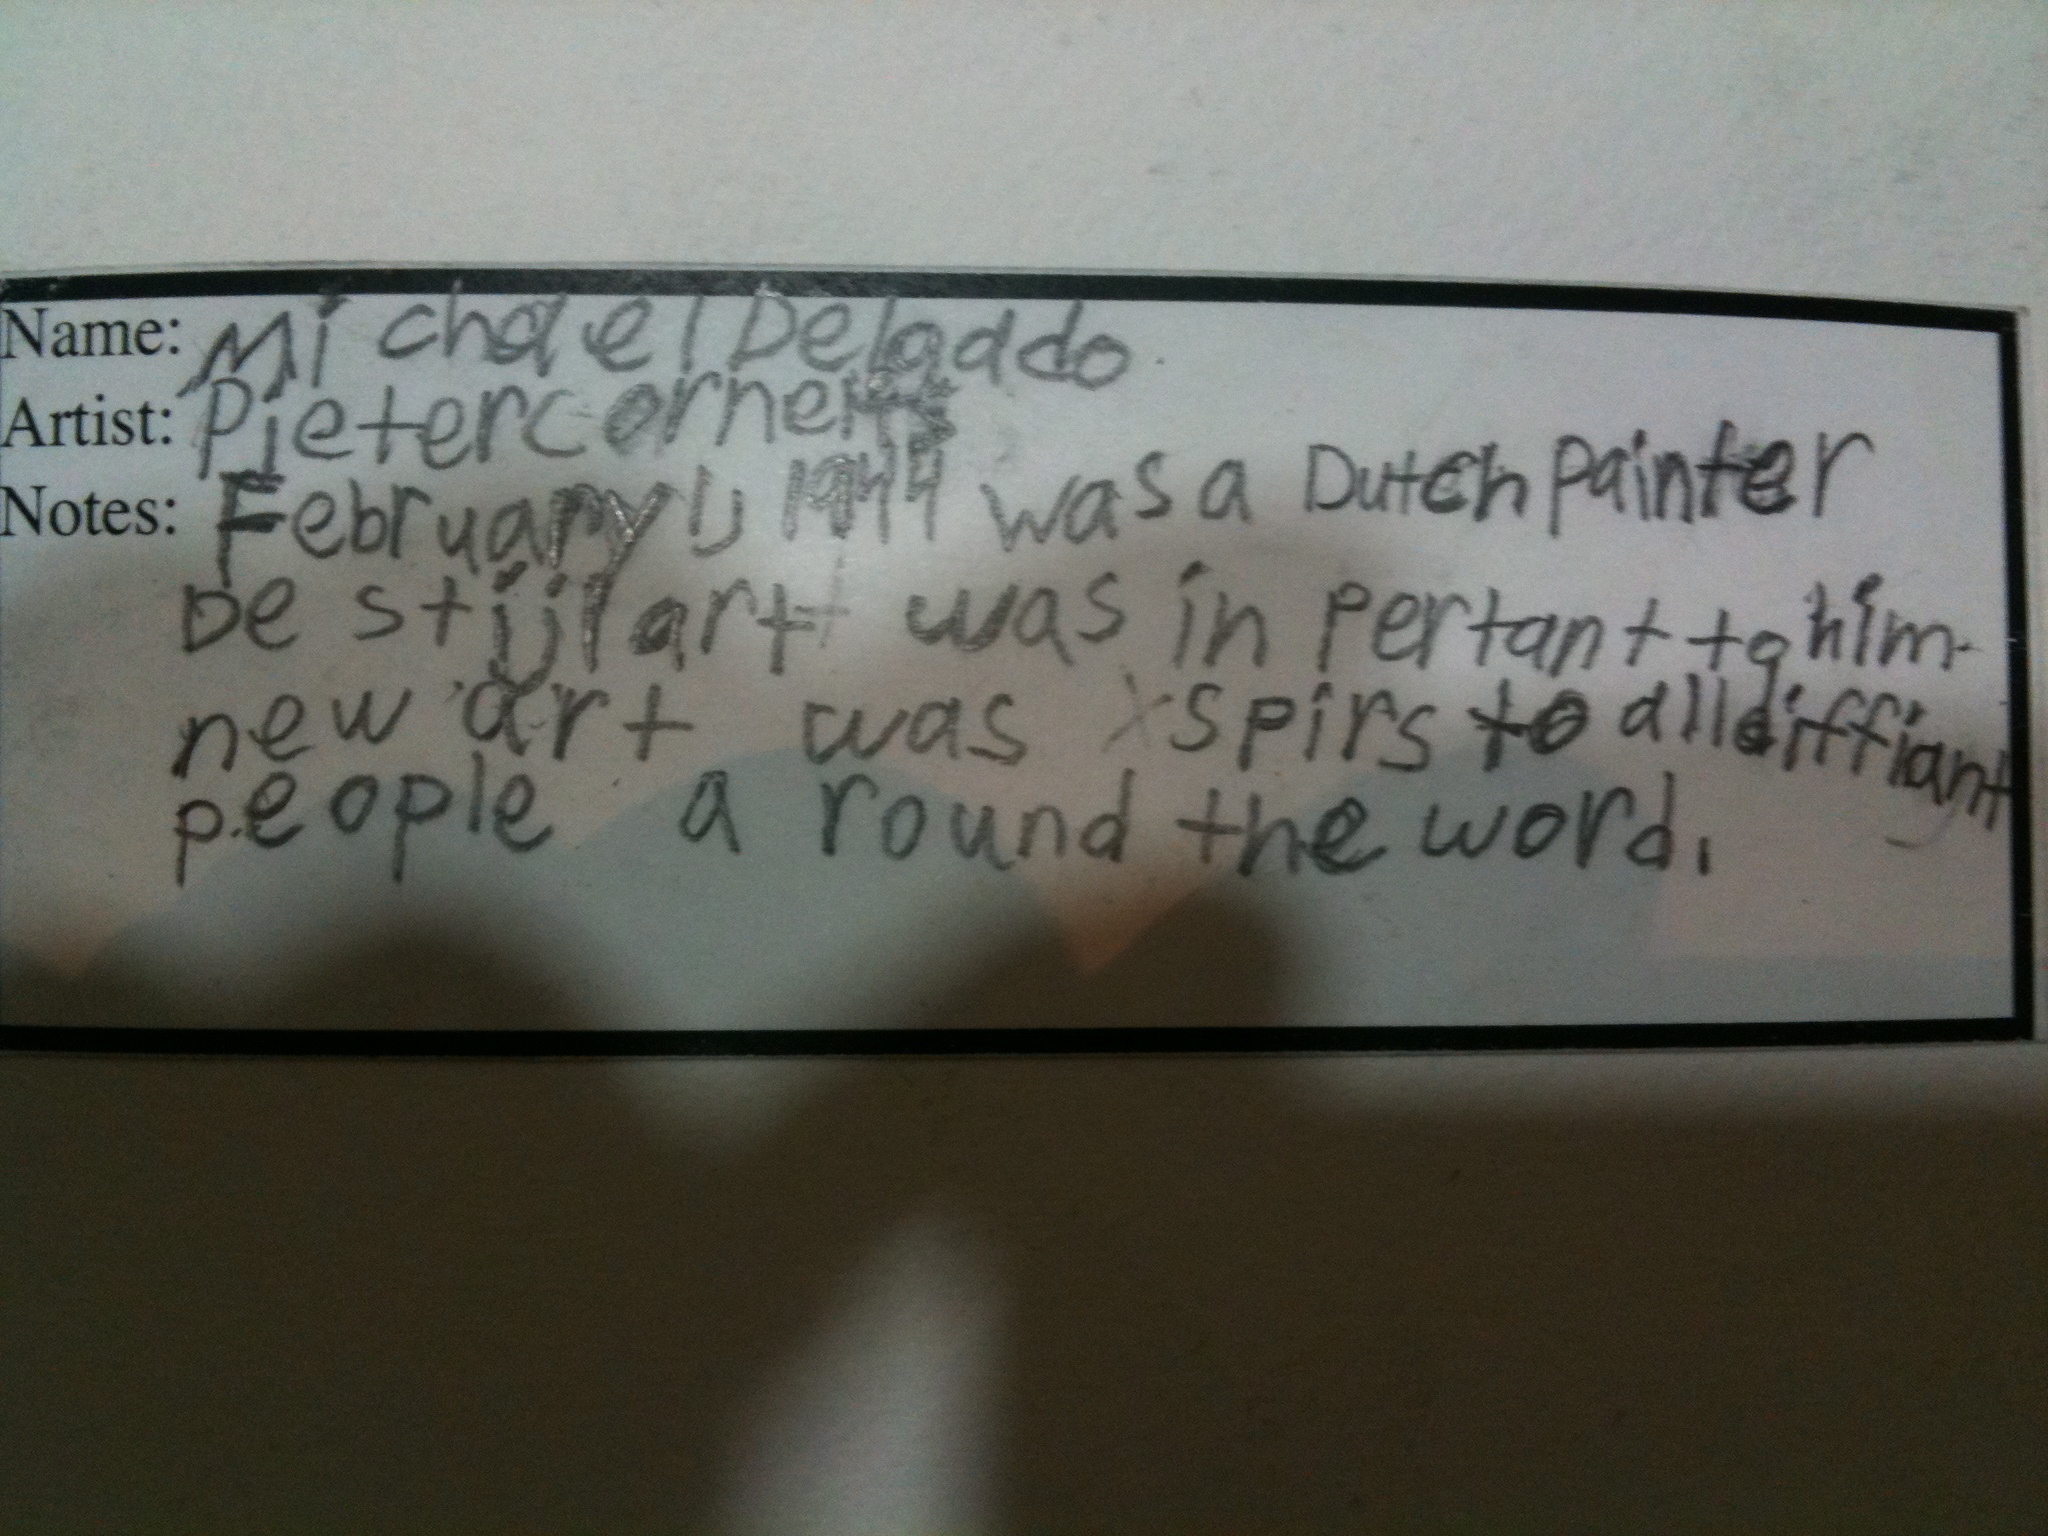 Name: Michael Deladdo
Artist: Pietercornelis
Notes: February 1, 1944 was a Dutch painter
De stijl art was in pertant to him.
new art was xspirs to all diffiant
people a round the word.